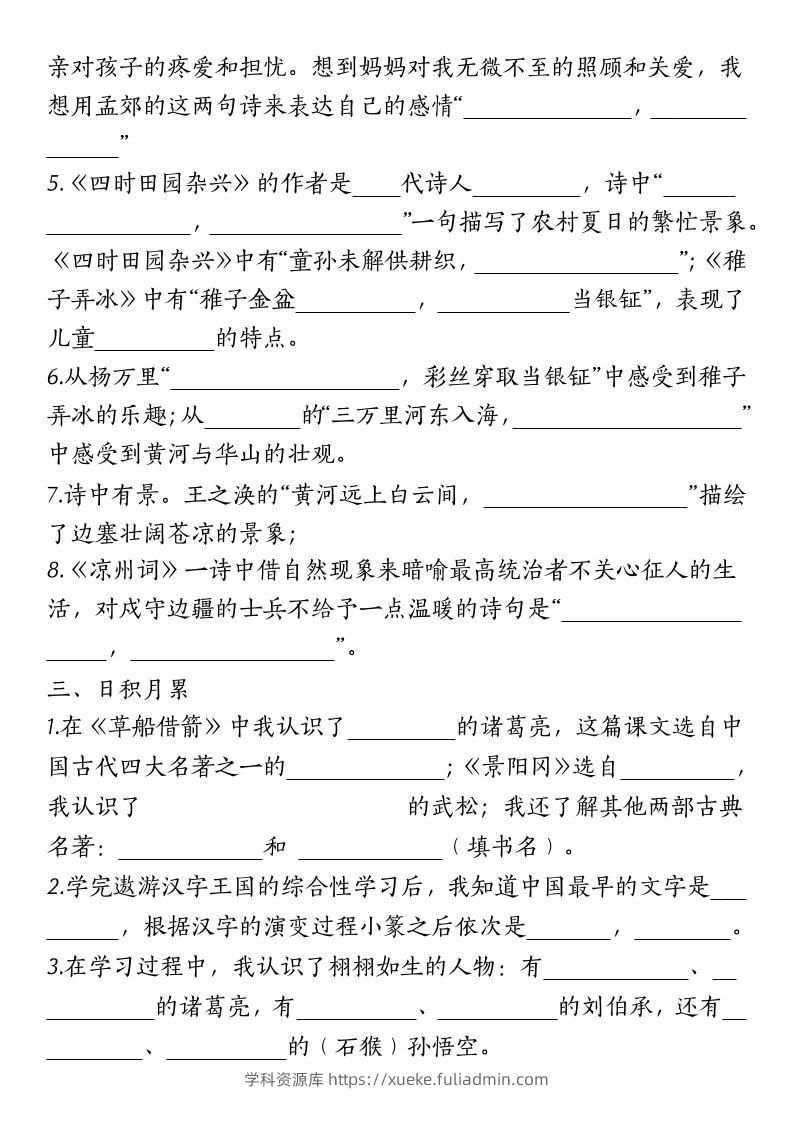 亲对孩子的疼爱和担忧。想到妈妈对我无微不至的照顾和关爱，我
想用孟郊的这两句诗来表达自己的感情“______________，________
______”
5.《四时田园杂兴》的作者是____代诗人_________，诗中“______
____________，________________”一句描写了农村夏日的繁忙景象。
《四时田园杂兴》中有“童孙未解供耕织，_________________”；《稚
子弄冰》中有“稚子金盆__________，___________当银钲”，表现了
儿童__________的特点。
6.从杨万里“___________________，彩丝穿取当银钲”中感受到稚子
弄冰的乐趣；从________的“三万里河东入海，___________________”
中感受到黄河与华山的壮观。
7.诗中有景。王之涣的“黄河远上白云间，_________________”描绘
了边塞壮阔苍凉的景象；
8.《凉州词》一诗中借自然现象来暗喻最高统治者不关心征人的生
活，对戍守边疆的士兵不给予一点温暖的诗句是“_______________
_____，_________________”。
三、日积月累
1.在《草船借箭》中我认识了_________的诸葛亮，这篇课文选自中
国古代四大名著之一的_____________；《景阳冈》选自_________，
我认识了 的武松；我还了解其他两部古典
名著：____________和 ____________（填书名）。
2.学完遨游汉字王国的综合性学习后，我知道中国最早的文字是___
______，根据汉字的演变过程小篆之后依次是_______，________。
3.在学习过程中，我认识了栩栩如生的人物：有____________、__
_________的诸葛亮，有__________、__________的刘伯承，还有__
________、__________的（石猴）孙悟空。
学科资源库 https://xueke.fuliadmin.com